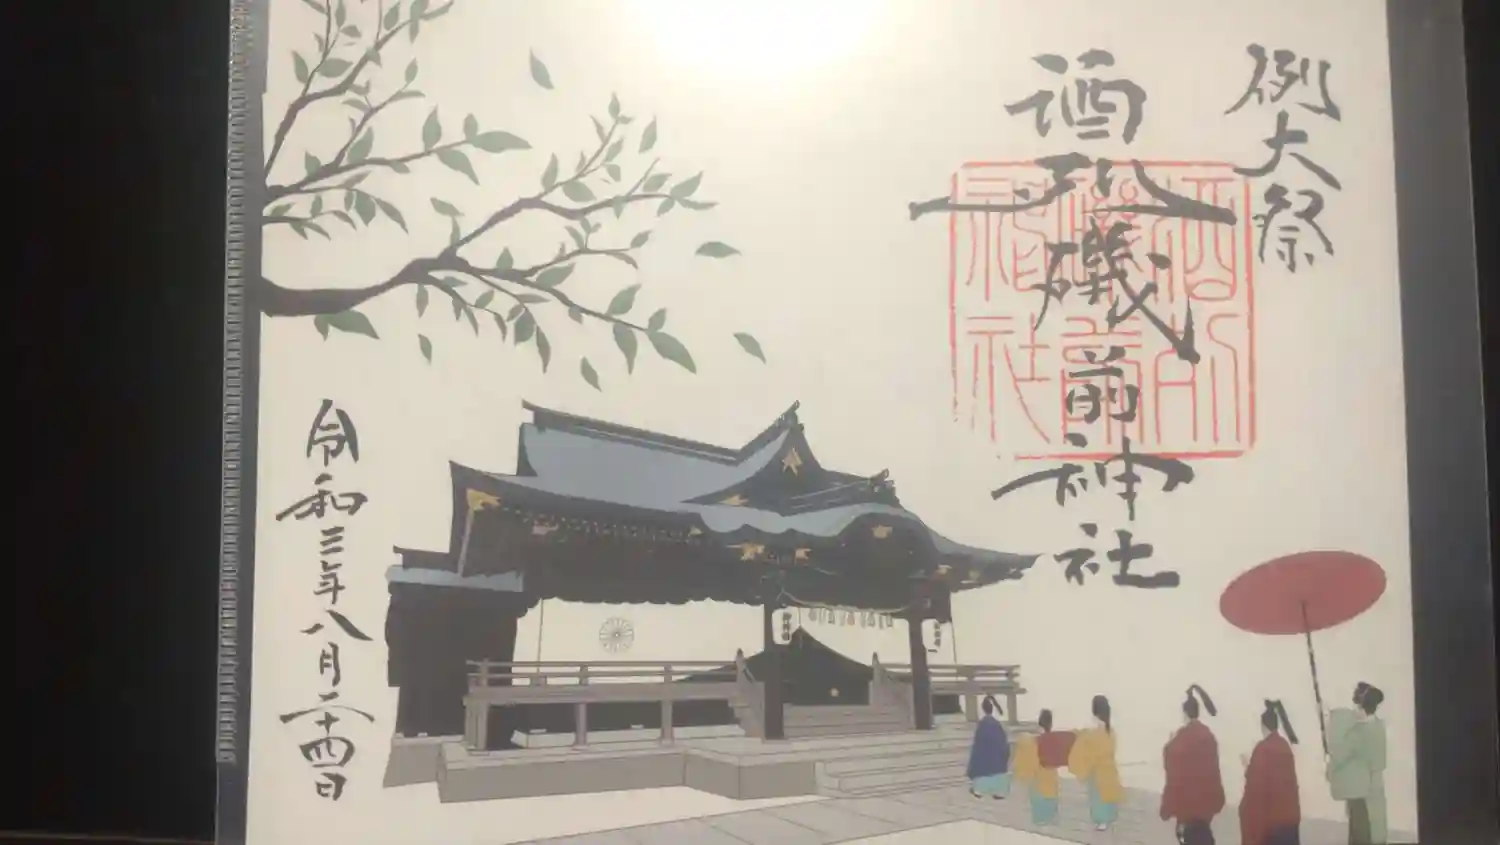 例大祭
酒列磯前神社
令和三年八月二十四日
酒列
磯前
神社